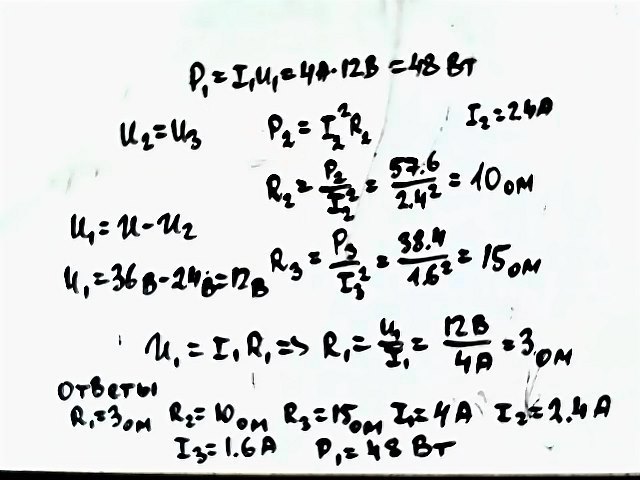 P₁=I₁U₁=4A·12B=48Вт
U₂=U₃ P₂=I₂²R₂ I₂=2.4A
R₂=P₂/I₂²=57.6/2.4²=10ом
U₁=U-U₂
U₁=36В-24В=12В R₃=P₃/I₃²=38.4/1.6²=15ом
U₁=I₁R₁=>R₁=U₁/I₁=12В/4A=3ом
ответы
R₁=3ом R₂=10ом R₃=15ом I₁=4A I₂=2.4A
I₃=1.6A P₁=48Вт